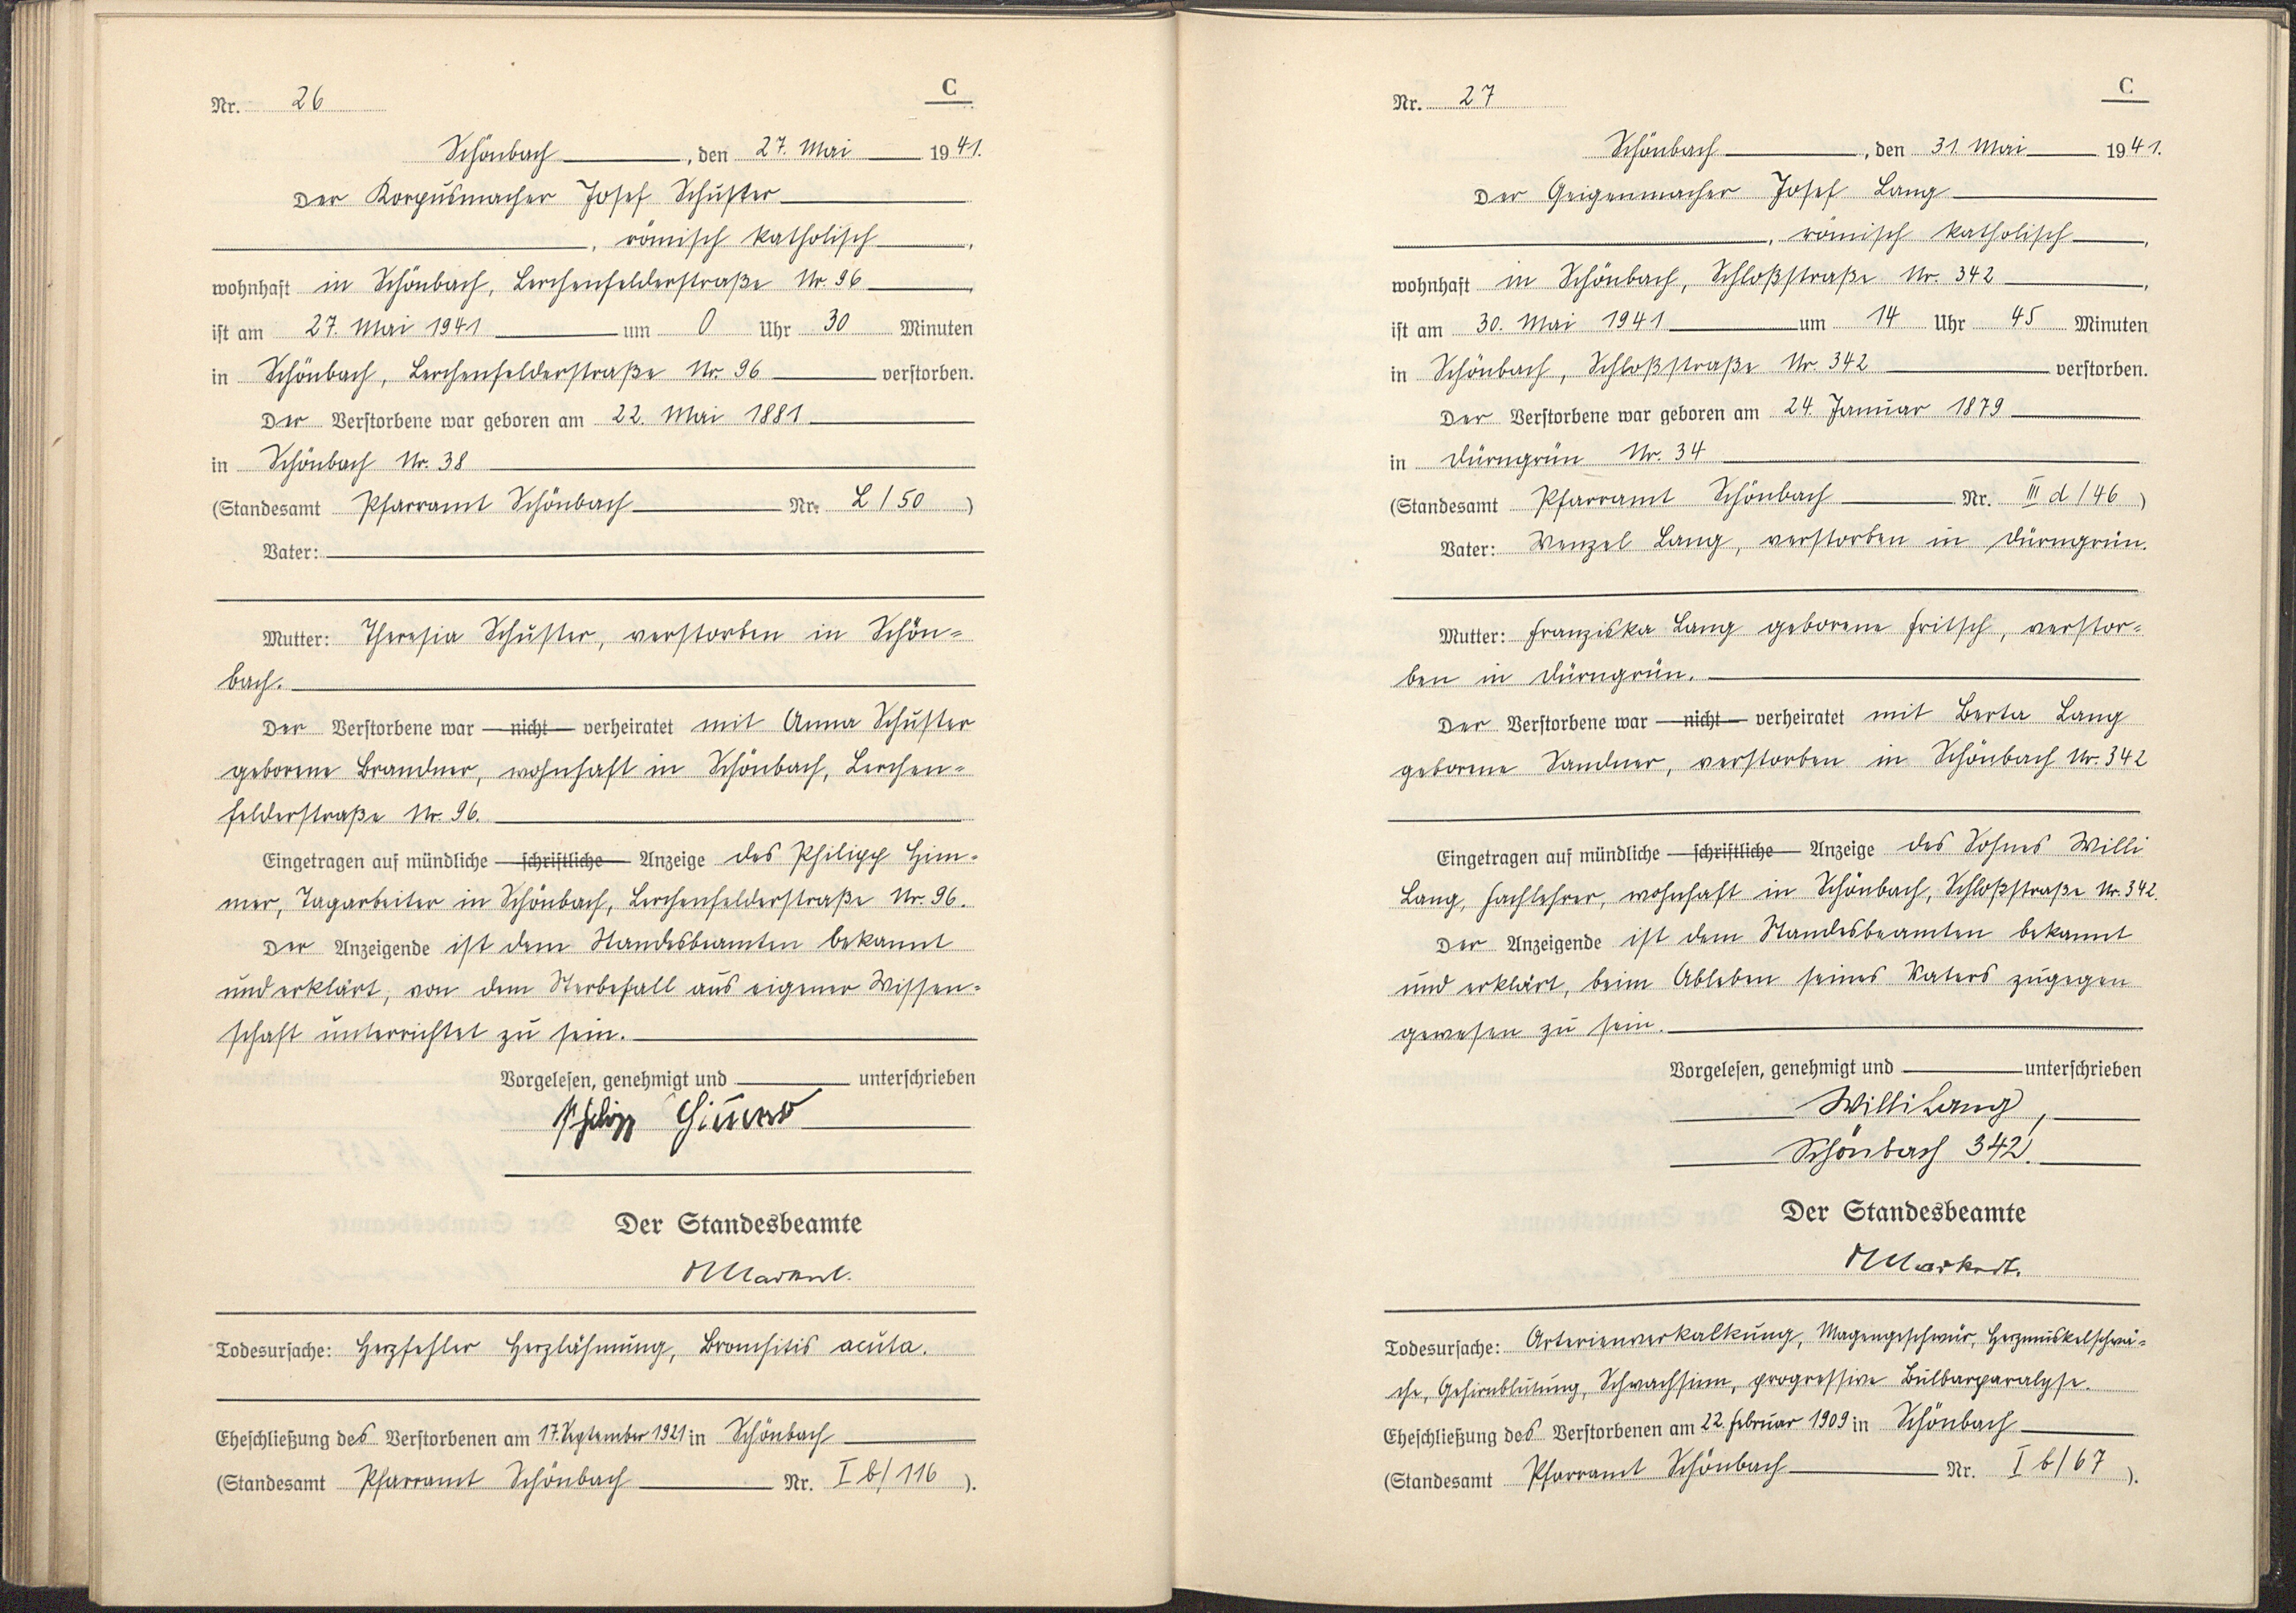 C
Nr. 26
Schönbach, den 27. Mai 1941.
Der Korpusmacher Josef Schuster
, römisch katholisch,
wohnhaft in Schönbach, Lerchenfelderstraße Nr. 96,
ist am 27. Mai 1941 um 0 Uhr 30 Minuten
in Schönbach, Lerchenfelderstraße Nr. 96 verstorben.
Der Verstorbene war geboren am 22. Mai 1881
in Schönbach Nr. 38
(Standesamt Pfarramt Schönbach Nr. L/50)
Vater:
Mutter: Theresia Schuster, verstorben in Schön=
bach.
Der Verstorbene war nicht verheiratet mit Anna Schuster
geborene Brandner, wohnhaft in Schönbach, Lerchen=
felderstraße Nr. 96.
Eingetragen auf mündliche schriftliche Anzeige des Philipp Him=
mer, Tagarbeiter in Schönbach, Lerchenfelderstraße Nr. 96.
Der Anzeigende ist dem Standesbeamten bekannt
und erklärt, von dem Sterbefall aus eigener Wissen=
schaft unterrichtet zu sein.
Vorgelesen, genehmigt und unterschrieben
Philipp Himmer
Der Standesbeamte
Todesursache: Herzfehler Herzlähmung, Bronchitis acuta.
Eheschließung des Verstorbenen am 17. September 1921 in Schönbach
(Standesamt Pfarramt Schönbach Nr. I b/116).
C
Nr. 27
Schönbach, den 31. Mai 1941.
Der Geigenmacher Josef Lang
, römisch katholisch,
wohnhaft in Schönbach, Schloßstraße Nr. 342,
ist am 30. Mai 1941 um 14 Uhr 45 Minuten
in Schönbach, Schloßstraße Nr. 342 verstorben.
Der Verstorbene war geboren am 24. Januar 1879
in Dürngrün Nr. 34
(Standesamt Pfarramt Schönbach Nr. III d/46)
Vater: Wenzel Lang, verstorben in Dürngrün.
Mutter: Franziska Lang geborene Fritsch, verstor=
ben in Dürngrün.
Der Verstorbene war nicht verheiratet mit Berta Lang
geborene Sandner, verstorben in Schönbach Nr. 342
Eingetragen auf mündliche schriftliche Anzeige des Sohnes Willi
Lang, Fachlehrer, wohnhaft in Schönbach, Schloßstraße Nr. 342.
Der Anzeigende ist dem Standesbeamten bekannt
und erklärt, beim Ableben seines Vaters zugegen
gewesen zu sein.
Vorgelesen, genehmigt und unterschrieben
Willi Lang,
Schönbach 342.
Der Standesbeamte
Todesursache: Arterienverkalkung, Magengeschwür, Herzmuskelschwä=
che, Gehirnblutung, Schwachsinn, progressive Bulbärparalyse.
Eheschließung des Verstorbenen am 22. Februar 1909 in Schönbach
(Standesamt Pfarramt Schönbach Nr. I b/67).